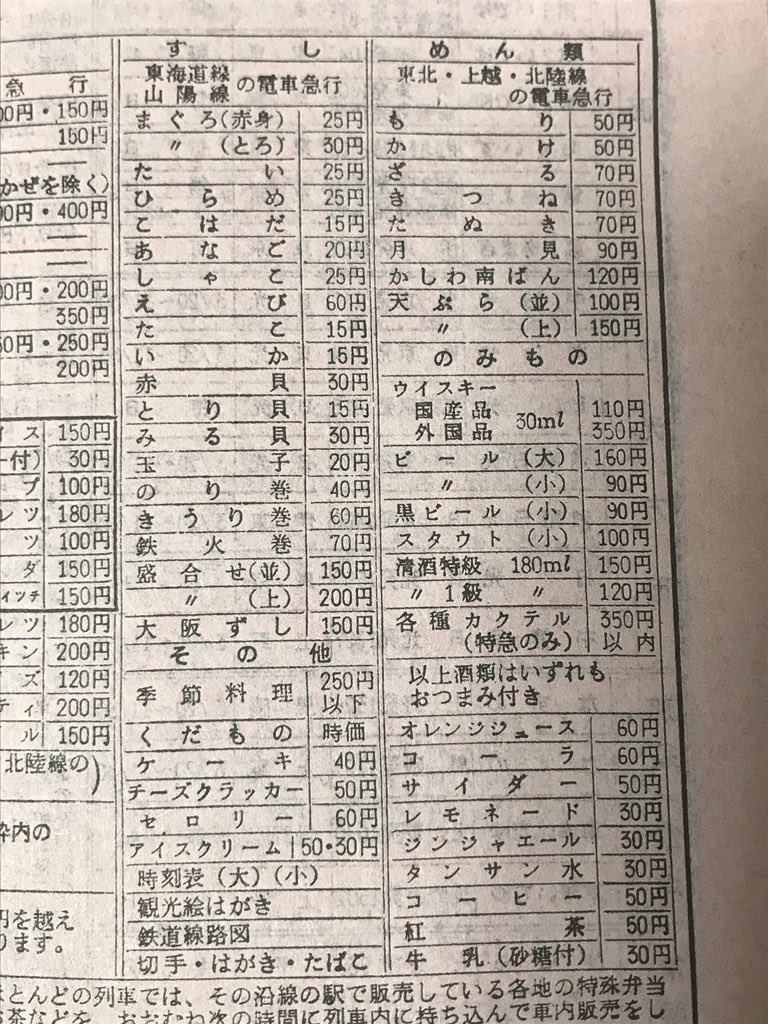 急行
00円・150円
150円
かぜを除く)
00円・400円
00円・200円
350円
50円・250円
200円
イス 150円
ー付) 30円
プ 100円
レツ 180円
ツ 100円
ダ 150円
ィッチ 150円
レツ 180円
キン 200円
ズ 120円
ティ 200円
ル 150円
北陸線の)
枠内の
円を越え
ります。
すし
東海道線
山陽線 の電車急行
まぐろ(赤身) 25円
〃 (とろ) 30円
たい 25円
ひらめ 25円
こはだ 15円
あなご 20円
しゃこ 25円
えび 60円
たこ 15円
いか 15円
赤貝 30円
とり貝 15円
みる貝 30円
玉子 20円
のり巻 40円
きうり巻 60円
鉄火巻 70円
盛合せ(並) 150円
〃 (上) 200円
大阪ずし 150円
その他
季節料理 250円以下
くだもの 時価
ケーキ 40円
チーズクラッカー 50円
セロリー 60円
アイスクリーム 50・30円
時刻表(大)(小)
観光絵はがき
鉄道線路図
切手・はがき・たばこ
めん類
東北・上越・北陸線
の電車急行
もり 50円
かけ 50円
ざる 70円
きつね 70円
たぬき 70円
月見 90円
かしわ南ばん 120円
天ぷら(並) 100円
〃 (上) 150円
のみもの
ウイスキー
国産品 30ml 110円
外国品 350円
ビール(大) 160円
〃 (小) 90円
黒ビール(小) 90円
スタウト(小) 100円
清酒特級 180ml 150円
〃 1級 〃 120円
各種カクテル 350円
(特急のみ) 以内
以上酒類はいずれも
おつまみ付き
オレンジジュース 60円
コーラ 60円
サイダー 50円
レモネード 30円
ジンジャエール 30円
タンサン水 30円
コーヒー 50円
紅茶 50円
牛乳(砂糖付) 30円
ほとんどの列車では、その沿線の駅で販売している各地の特殊弁当
お茶などを、おおむね次の時間に列車内に持ち込んで車内販売をし